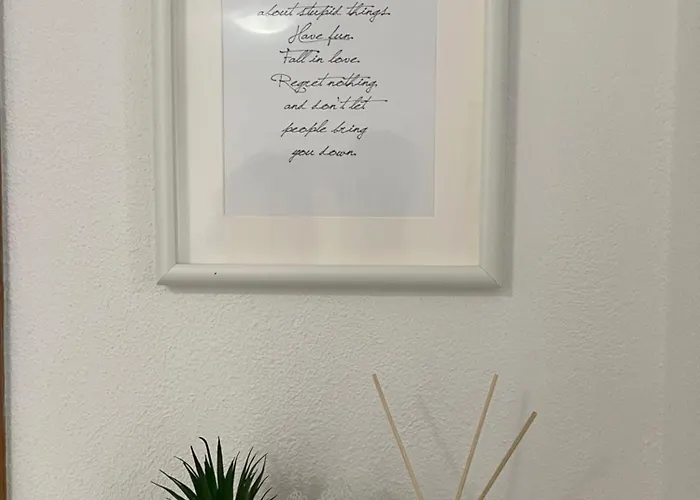 about stupid things.
Have fun.
Fall in love.
Regret nothing,
and don't let
people bring
you down.